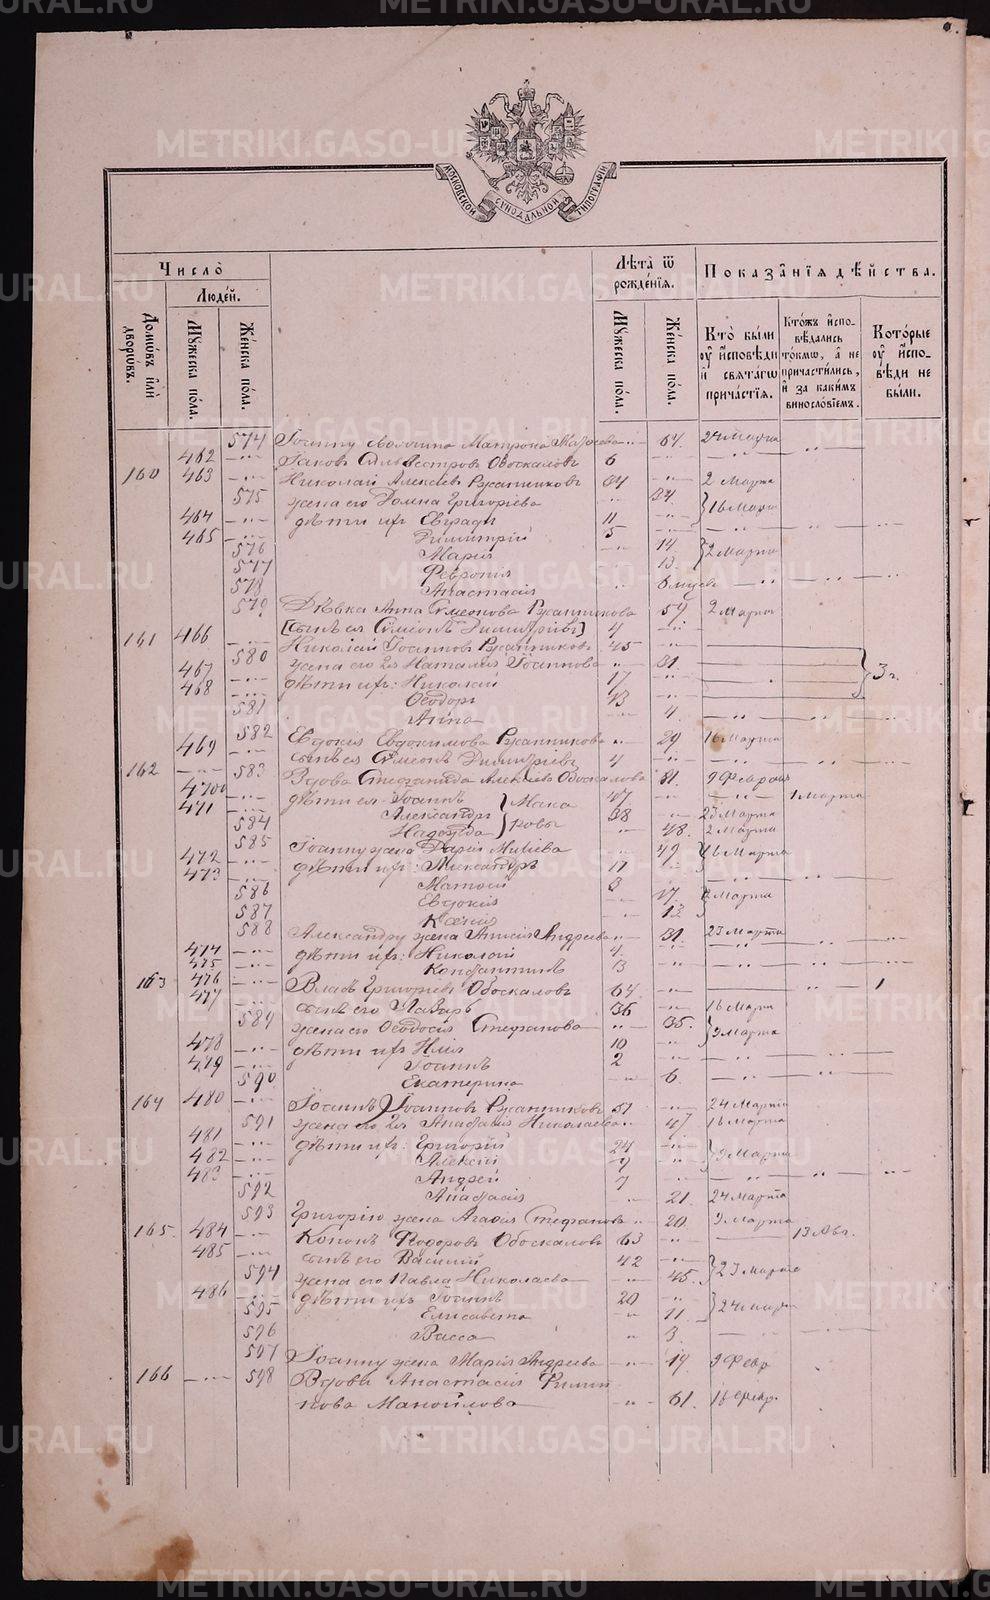 МОСКОВСКОЙ СѴНОДАЛЬНОЙ ТИПОГРАФІИ
Число̀
Людéй.
Домѡвъ илѝ дворѡвъ.
Мꙋжеска по́ла.
Же́нска по́ла.
Лѣ́та ѿ рожде́нїѧ.
Мꙋжеска по́ла.
Же́нска по́ла.
Показа̑нїѧ дѣ́йства.
Кто̀ бы́ли ᲂу҆ и҆сповѣ́ди и҆ свѧта́гѡ прича́стїѧ.
Кто́жъ и҆сповѣ́дались то́кмѡ, а҆ не причасти́лись, и҆ за каки́мъ виносло́вїемъ.
Кото́рые ᲂу҆ и҆спо́вѣди не бы́ли.
574 Іоанну Матрона 64. 24 Марта
462 Іаковъ Сильвестровъ Обоскаловъ 6
160 463 Николай Алексѣевъ Русанниковъ 34 2 Марта
575 жена его Домна Григоріева 34. 16 Марта
464 дѣти ихъ Евграфъ 11
465 Димитрій 5
576 Марія 14. 2 Марта
577 Февронія 13.
578 Анастасія
579 Дѣвка Анна Симеонова Русанникова 54 2 Марта
[сынъ ея Симеонъ Димитріевъ] 4
161 466 Николай Іоанновъ Русанниковъ 45
580 жена его 2я Наталія Іоаннова 31. 3
467 дѣти ихъ: Николай 17
468 Ѳеодоръ 13
581 Анна 4.
582 Евдокія Евдокимова Русанникова 29 16 Марта
469 сынъ ея Симеонъ Димитріевъ 4
162 583 Вдова Стефанида Алексѣева Обоскалова 81. 9 Февраля
470 дѣти ея Іоаннъ 47 1 Марта
471 Александръ 38 23 Марта
584 Надежда 48. 2 Марта
585 Іоанну жена Дарія 49. 16 Марта
472 дѣти ихъ: Александръ 17
473 Матѳей 3
586 Евдокія 17 2 Марта
587 Ксенія 12
588 Александру жена Анисія Андреева 31. 23 Марта
474 дѣти ихъ: Николай 4.
475 Константинъ 13
163 476 Власъ Григоріевъ Обоскаловъ 64 1
477 сынъ его Лазарь 36 16 Марта
589 жена его Ѳеодосія Стефанова 35. 9 Марта
478 дѣти ихъ Илія 10
479 Іоаннъ 2
590 Екатерина 6.
164 480 Іоаннъ Іоанновъ Русанниковъ 51 24 Марта
591 жена его 2я Анастасія Николаева 47 16 Марта
481 дѣти ихъ: Григорій 24
482 Алексій 9 9 Марта
483 Андрей 7
592 Анастасія 21. 24 Марта
593 Григорію жена Агафія Стефанова 20. 9 Марта
165. 484 Кононъ Ѳеодоровъ Обоскаловъ 63 13 Авг.
485 сынъ его Василій 42
594 жена его Павла Николаева 45. 23 Марта
486 дѣти ихъ Іоаннъ 20
595 Елисавета 11 24 Марта
596 Васса 3.
597 Іоанну жена Марія Андреева 19 9 Февр
166 598 Вдова Анастасія Филип
пова Манойлова 61. 16 Февр.